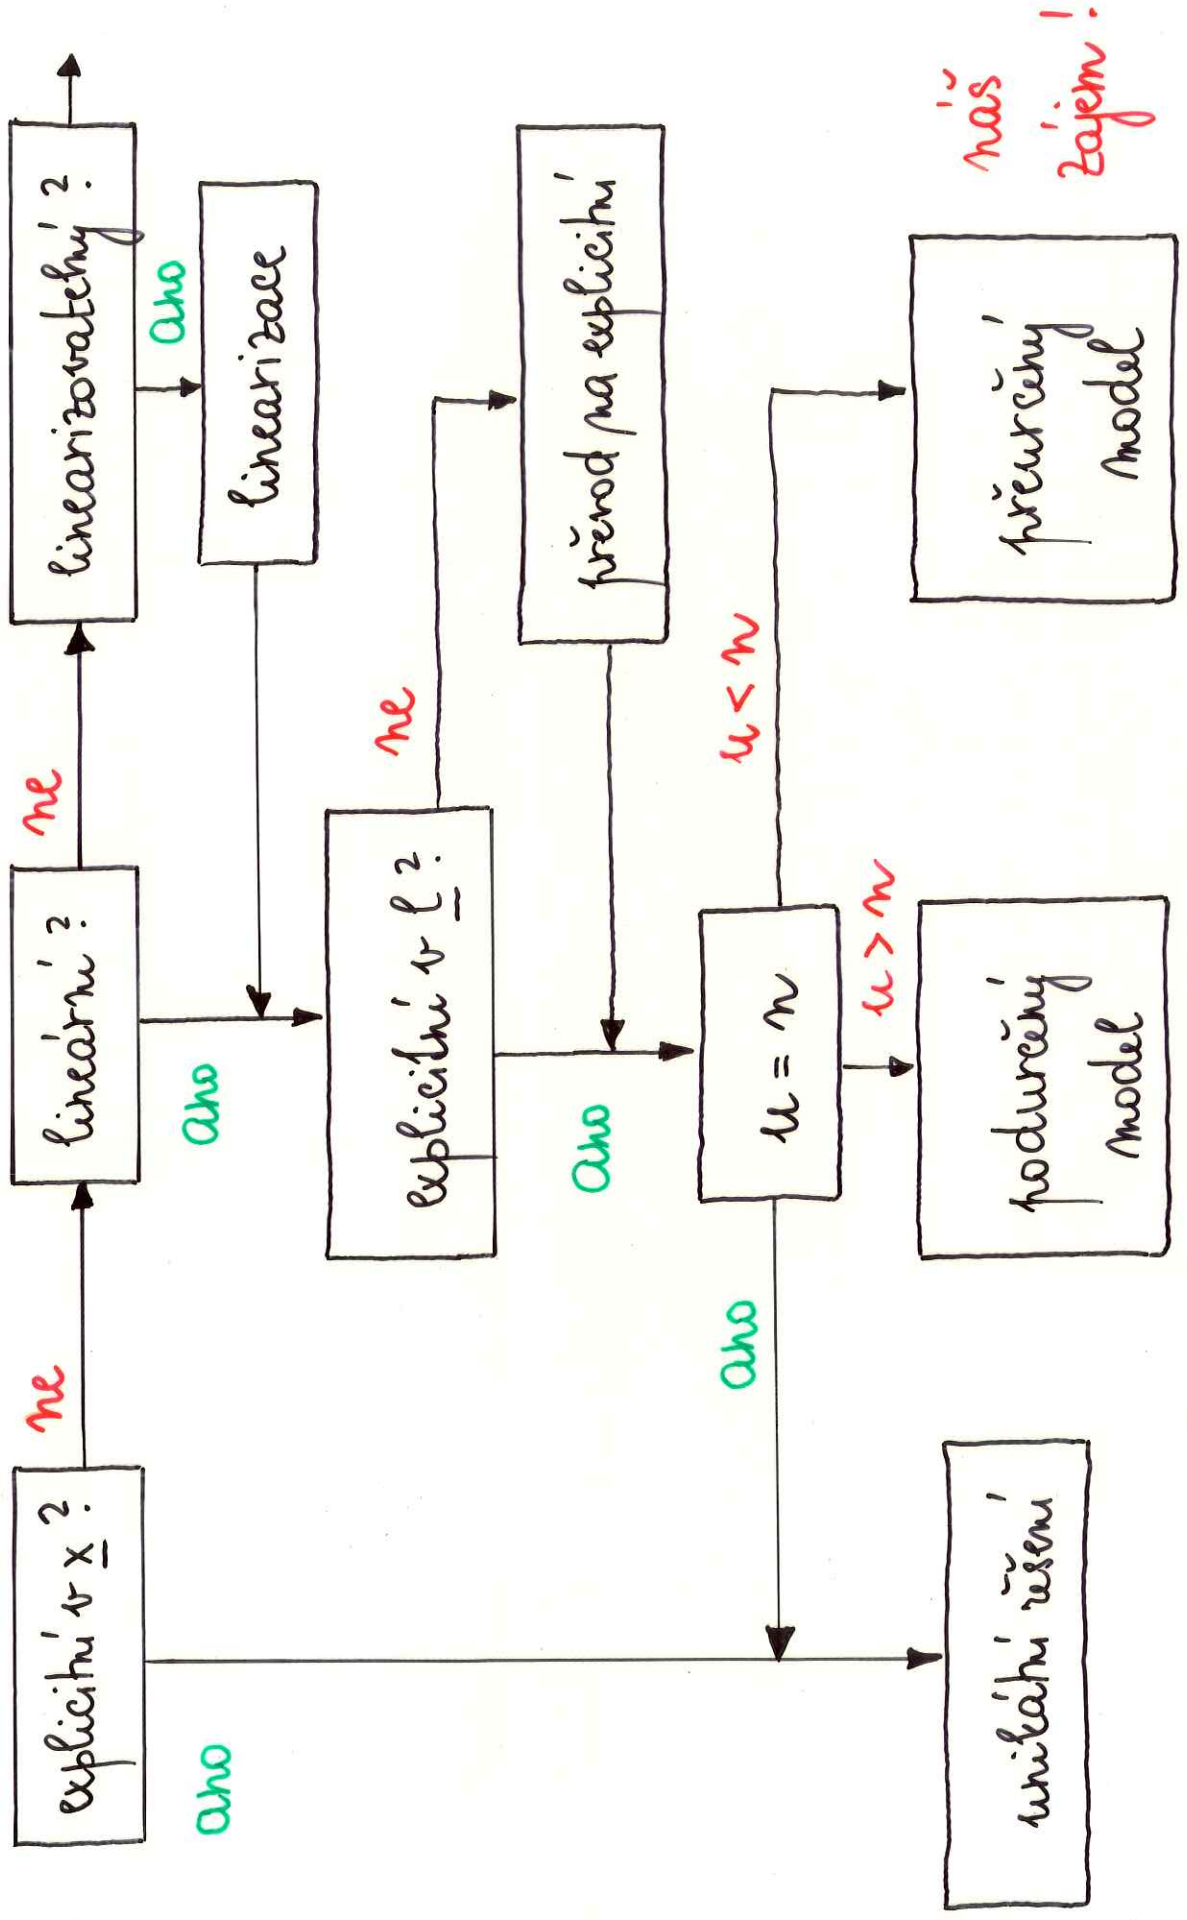 explicitní v x ?
ne
lineární ?
ne
linearizovatelný ?
ano
ano
ano
linearizace
explicitní v l ?
ne
převod na explicitní
ano
ano
u = n
u < n
u > n
unikátní řěšení
podurčený
model
přeurčěný
model
náš
zájem !